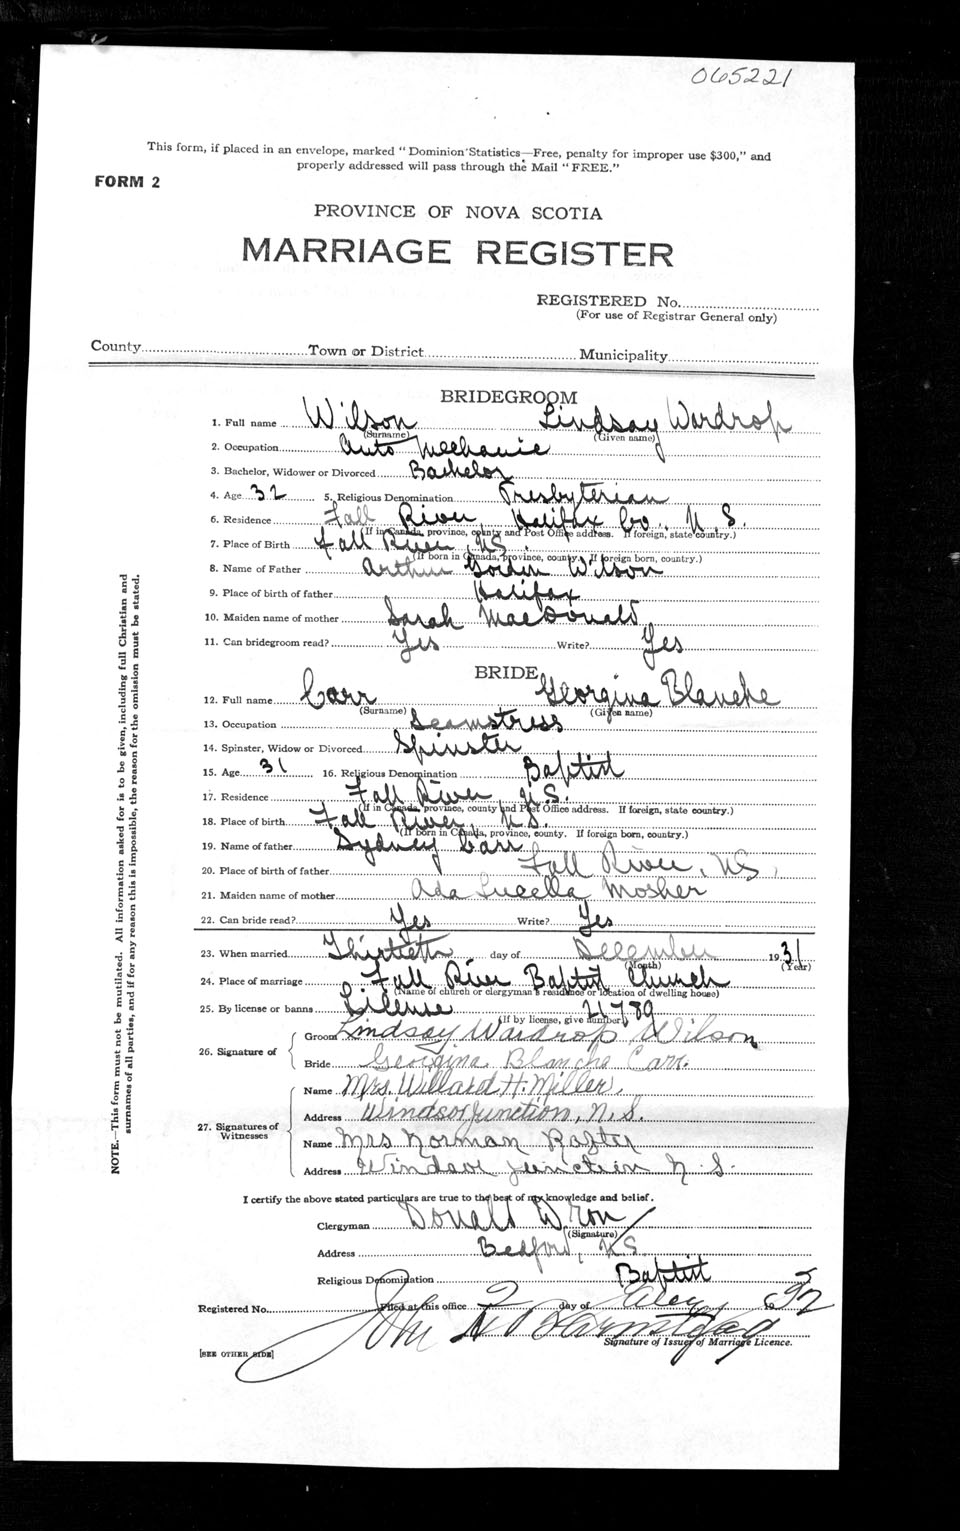 065221
This form, if placed in an envelope, marked "Dominion Statistics—Free, penalty for improper use $300," and
properly addressed will pass through the Mail "FREE."
FORM 2
PROVINCE OF NOVA SCOTIA
MARRIAGE REGISTER
REGISTERED No.
(For use of Registrar General only)
County Town or District Municipality
BRIDEGROOM
1. Full name Wilson Lindsay Wardrop
(Surname) (Given name)
2. Occupation Auto Mechanic
3. Bachelor, Widower or Divorced Bachelor
4. Age 32 5. Religious Denomination Presbyterian
6. Residence Fall River, Halifax Co., N.S.
(If in Canada, province, county and Post Office address. If foreign, state country.)
7. Place of Birth Fall River N.S.
(If born in Canada, province, county. If foreign born, country.)
8. Name of Father Arthur Gordon Wilson
9. Place of birth of father Halifax
10. Maiden name of mother Sarah MacDonald
11. Can bridegroom read? Yes Write? Yes
BRIDE
12. Full name Carr Georgina Blanche
(Surname) (Given name)
13. Occupation Seamstress
14. Spinster, Widow or Divorced Spinster
15. Age 31 16. Religious Denomination Baptist
17. Residence Fall River N.S.
(If in Canada, province, county and Post Office address. If foreign, state country.)
18. Place of birth Fall River, N.S.
(If born in Canada, province, county. If foreign born, country.)
19. Name of father Sydney Carr
20. Place of birth of father Fall River, NS,
21. Maiden name of mother Ada Luella Mosher
22. Can bride read? Yes Write? Yes
23. When married Thirtieth day of December 1931
(Month) (Year)
24. Place of marriage Fall River Baptist Church
(Name of church or clergyman's residence or location of dwelling house)
25. By license or banns License 21789
(If by license, give number)
26. Signature of
Groom Lindsay Wardrop Wilson
Bride Georgina Blanche Carr.
27. Signatures of Witnesses
Name Mrs. Willard H. Miller,
Address Windsor Junction, N.S.
Name Mrs Norman
Address Windsor Junction N.S.
I certify the above stated particulars are true to the best of my knowledge and belief.
Clergyman Donald
(Signature)
Address Bedford, NS
Religious Denomination Baptist
Registered No. Filed at this office 2 day of 1932
John
Signature of Issuer of Marriage Licence.
[SEE OTHER SIDE]
NOTE.—This form must not be mutilated. All information asked for is to be given, including full Christian and
surnames of all parties, and if for any reason this is impossible, the reason for the omission must be stated.